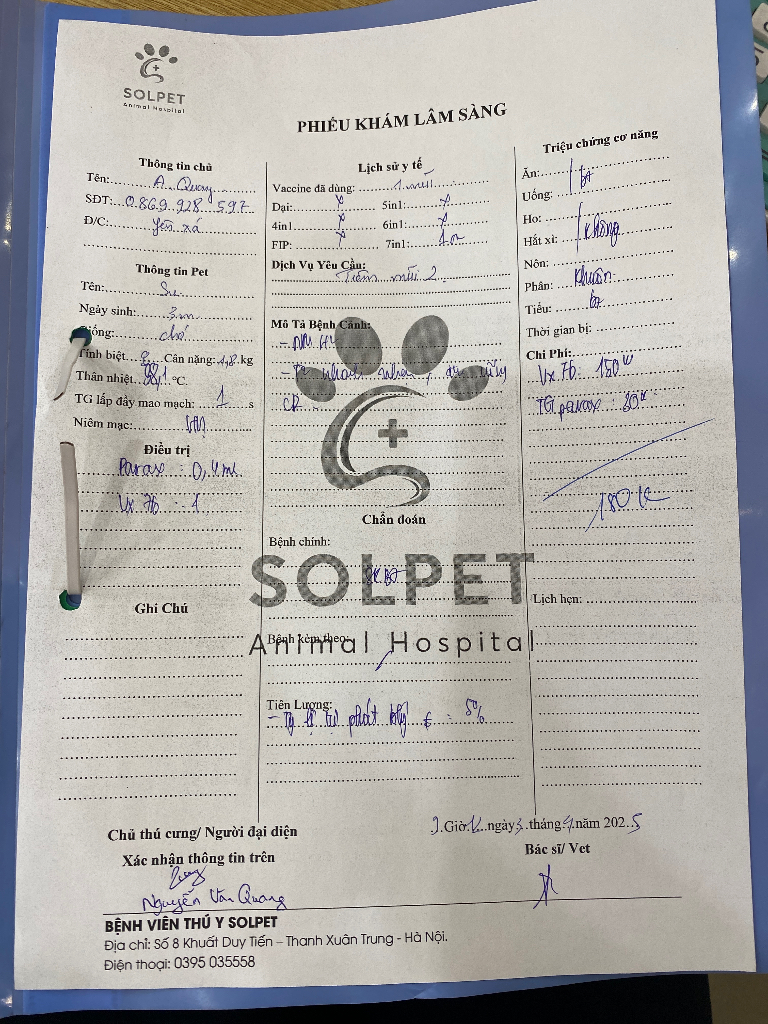 SOLPET
Animal Hospital
PHIẾU KHÁM LÂM SÀNG
Thông tin chủ
Tên: A Quang
SĐT: 0869.928.597
Đ/C: Yên xá
Thông tin Pet
Tên: Su
Ngày sinh: 3m
Giống: chó
Tính biệt Cân nặng: 1,8 kg
Thân nhiệt 38,1 °C.
TG lấp đầy mao mạch: 1 s
Niêm mạc:
Điều trị
Parax : 0,4ml
Vx 7b : 1
Ghi Chú
Lịch sử y tế
Vaccine đã dùng: 1 mũi
Dại: x 5in1: x
4in1 x 6in1: x
FIP: x 7in1:
Dịch Vụ Yêu Cầu:
Tiêm mũi 2
Mô Tả Bệnh Cảnh:
- NM H
Chẩn đoán
Bệnh chính:
SOLPET
Animal Hospital
Bệnh kèm theo:
Tiên Lượng:
- Tỷ lệ phát : 5%
Triệu chứng cơ năng
Ăn:
Uống: bt
Ho:
Hắt xì: không
Nôn:
Phân: khuôn
Tiểu: bt
Thời gian bị:
Chi Phí:
Vx 7b : 150k
TG parax : 30k
180k
Lịch hẹn:
Giờ ngày 3 tháng 4 năm 2025
Chủ thú cưng/ Người đại diện
Xác nhận thông tin trên
Bác sĩ/ Vet
Quang
Nguyễn Văn Quang
BỆNH VIÊN THÚ Y SOLPET
Địa chỉ: Số 8 Khuất Duy Tiến – Thanh Xuân Trung - Hà Nội.
Điện thoại: 0395 035558